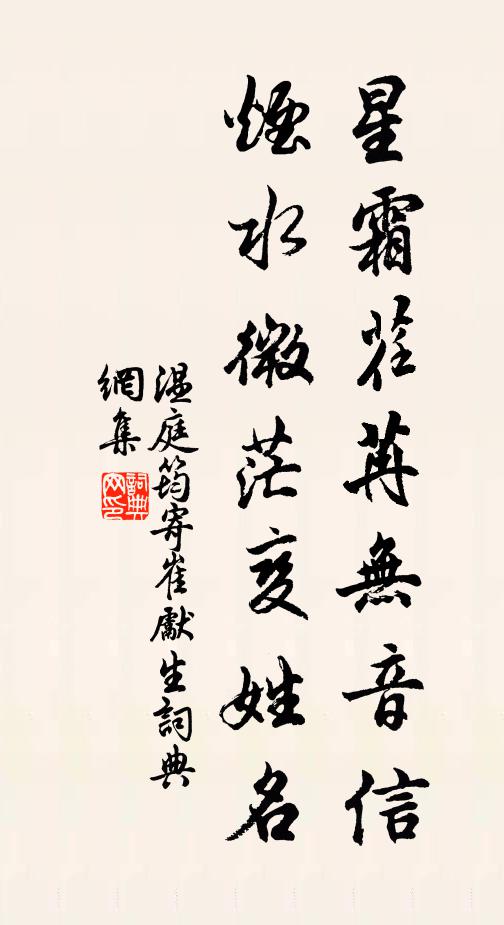 星霜荏苒無音信
煙水微茫变姓名
温庭筠寄崔獻生詞典
網集
詞典
网印